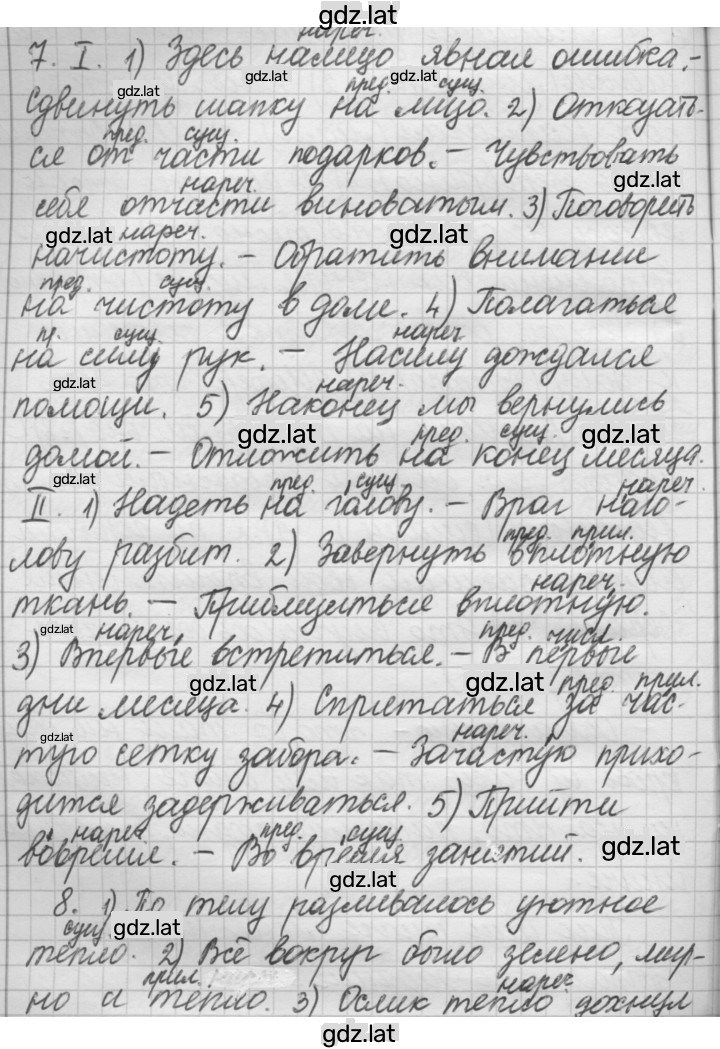 gdz.lat
нареч.
7. I. 1) Здесь налицо явная ошибка. –
gdz.lat gdz.lat
gdz.lat пред. сущ.
Сдвинуть шапку на лицо. 2) Отказать-
пред. сущ.
ся от части подарков. – Чувствовать
нареч. gdz.lat
себя отчасти виноватым. 3) Поговорить
gdz.lat нареч. gdz.lat
начистоту. – Обратить внимание
пред. сущ.
на чистоту в доме. 4) Полагаться
пр. сущ. нареч.
на силу рук. – Насилу дождался
gdz.lat нареч.
помощи. 5) Наконец мы вернулись
gdz.lat пред. сущ. gdz.lat
домой. – Отложить на конец месяца.
gdz.lat пред. сущ. нареч.
II. 1) Надеть на голову. – Враг наго-
пред. прил.
лову разбит. 2) Завернуть в плотную
нареч.
ткань. – Приблизиться вплотную.
gdz.lat нареч. пред. числ.
3) Впервые встретиться. – В первые
gdz.lat gdz.lat пред. прил.
дни месяца. 4) Спрятаться за час-
gdz.lat нареч.
тую сетку забора. – Зачастую прихо-
дится задерживаться. 5) Прийти
нареч. пред. сущ. gdz.lat
вовремя. – Во время занятий.
gdz.lat
8. 1) По телу разливалось уютное
сущ. gdz.lat
тепло. 2) Всё вокруг было зелено, мир-
прил. нареч.
но и тепло. 3) Ослик тепло дохнул
gdz.lat